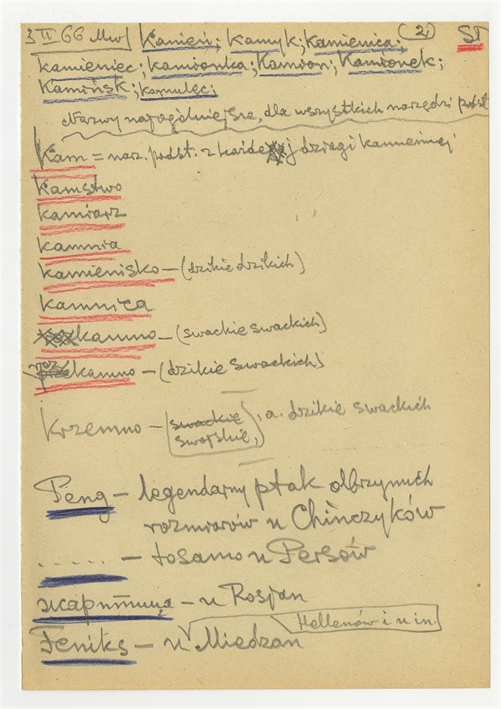 3 II 66 Mw Kamień; Kamyk; Kamienica; (2) ST
kamieniec; kamionka; Kamion; Kamionek;
Kamińsk; kamulec;
Nazwy najogólniejsze, dla wszystkich narzędzi podst.
Kam = narz. podst. z każdej dziagi kamiennej
Kamstwo
kamiarz
kamnia
kamienisko – (dzikie dzikich)
kamnica
kamno – (swackie swackich)
kamno – (dzikie swackich)
Krzemno – (swackie swojskie), a. dzikie swackich
Peng – legendarny ptak olbrzymich
rozmiarów u Chińczyków
..... – tosamo u Persów
жарптица – u Rosjan
Hellenów i u in.
Feniks – u Miedzan